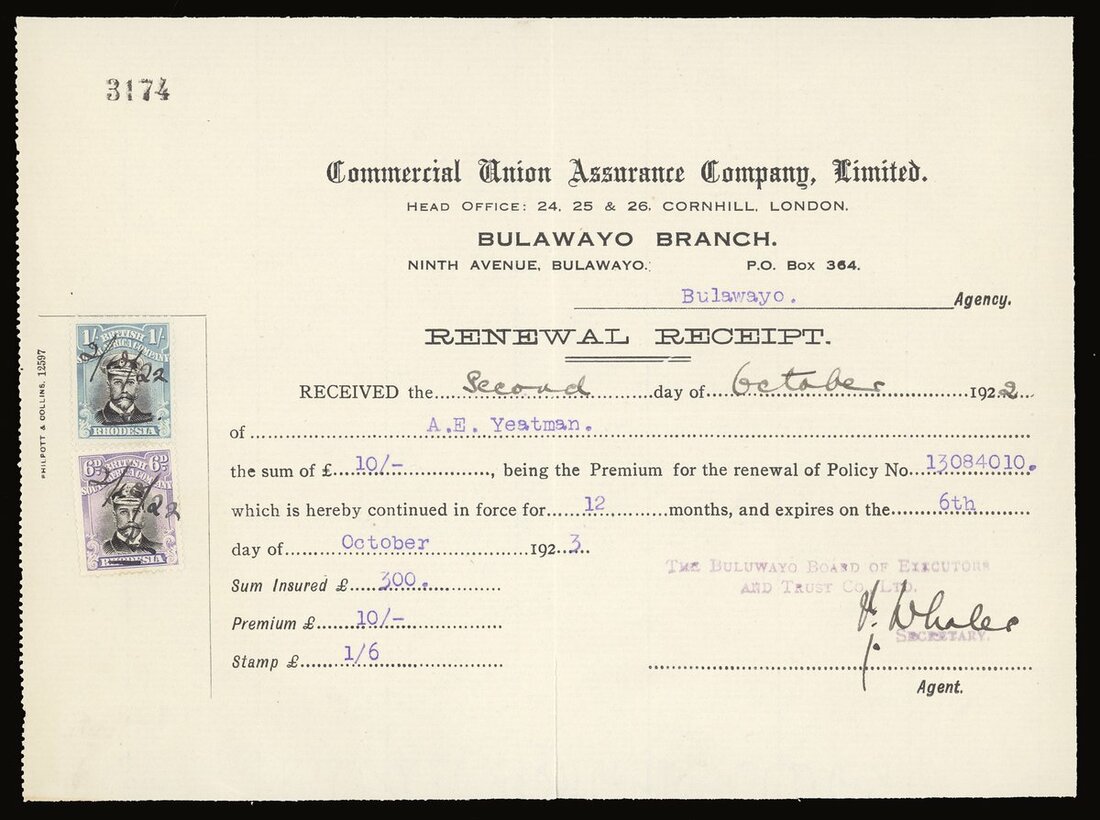 3174
Commercial Union Assurance Company, Limited.
HEAD OFFICE: 24, 25 & 26, CORNHILL, LONDON.
BULAWAYO BRANCH.
NINTH AVENUE, BULAWAYO. P.O. Box 364.
Bulawayo. Agency.
RENEWAL RECEIPT.
RECEIVED the Second day of October 1922
of A.E. Yeatman.
the sum of £ 10/- , being the Premium for the renewal of Policy No. 13084010.
which is hereby continued in force for 12 months, and expires on the 6th
day of October 1923.
Sum Insured £ 300.
Premium £ 10/-
Stamp £ 1/6
THE BULUWAYO BOARD OF EXECUTORS
AND TRUST CO. LTD.
Whaler
SECRETARY.
Agent.
PHILPOTT & COLLINS, 12597
1/- BRITISH 1/-
COMPANY
RHODESIA
6D BRITISH 6D
COMPANY
RHODESIA